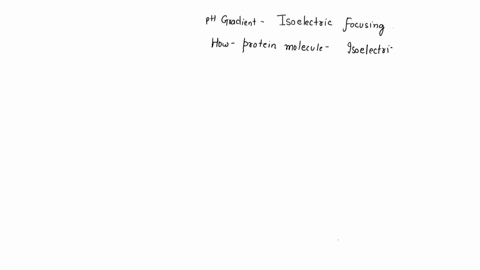 pH Gradient - Isoelectric focusing
How - protein molecule - Isoelectri